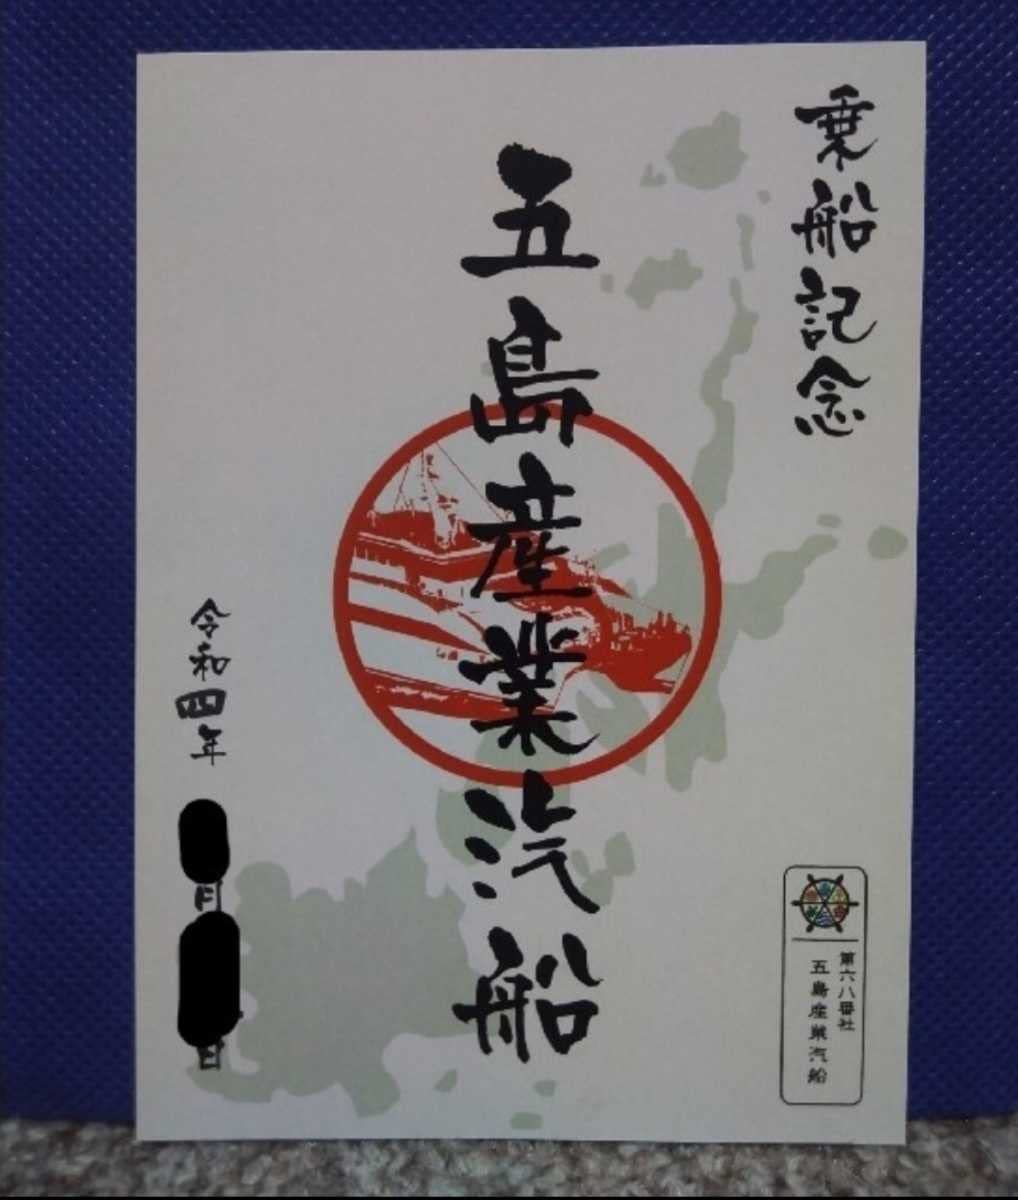 乗船記念
五島産業汽船
令和四年
月
日
第六八番社
五島産業汽船